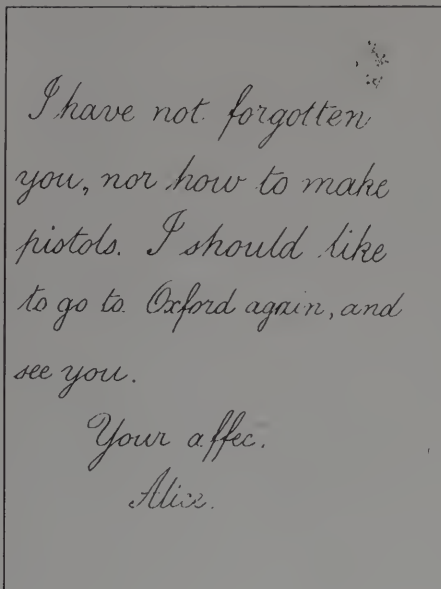 I have not forgotten
you, nor how to make
pistols. I should like
to go to Oxford again, and
see you.
Your affec.
Alice.